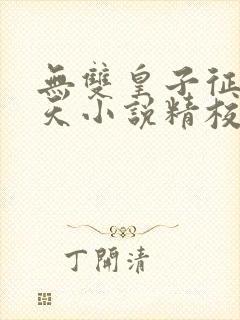 無雙皇子征
天小說精校
丁開清